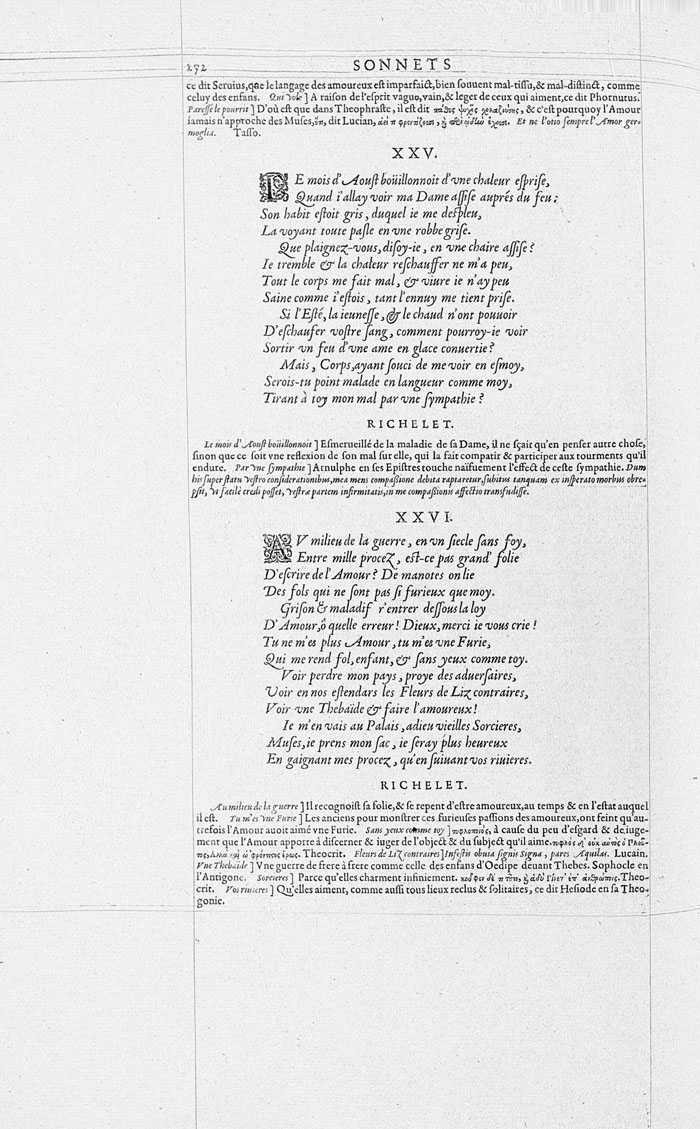 292 SONNETS
ce dit Seruius, que le langage des amoureux est imparfaict, bien souuent mal-tissu, & mal-distinct, comme
celuy des enfans. Qui vole ] A raison de l'esprit vague, vain, & leger de ceux qui aiment, ce dit Phornutus.
Paresse le pourrit ] D'où est que dans Theophraste, il est dit & c'est pourquoy l'Amour
iamais n'approche des Muses, dit Lucian, Et ne l'otio sempre l'Amor ger-
moglia. Tasso.
XXV.
LE mois d'Aoust boüillonnoit d'vne chaleur esprise,
Quand i'allay voir ma Dame assise auprés du feu;
Son habit estoit gris, duquel ie me despleu,
La voyant toute pasle en vne robbe grise.
Que plaignez-vous, disoy-ie, en vne chaire assise?
Ie tremble & la chaleur reschauffer ne m'a peu,
Tout le corps me fait mal, & viure ie n'ay peu
Saine comme i'estois, tant l'ennuy me tient prise.
Si l'Esté, la ieunesse, & le chaud n'ont pouuoir
D'eschaufer vostre sang, comment pourroy-ie voir
Sortir vn feu d'vne ame en glace conuertie?
Mais, Corps, ayant souci de me voir en esmoy,
Serois-tu point malade en langueur comme moy,
Tirant à toy mon mal par vne sympathie?
RICHELET.
Le mois d'Aoust boüillonnoit ] Esmerueillé de la maladie de sa Dame, il ne sçait qu'en penser autre chose,
sinon que ce soit vne reflexion de son mal sur elle, qui la fait compatir & participer aux tourments qu'il
endure. Par vne sympathie ] Arnulphe en ses Epistres touche naïfuement l'effect de ceste sympathie. Dum
his super statu vestro considerationibus, mea mens compassione debita raptaretur, subitus tanquam ex insperato morbus obre-
psit, vt facilè credi posset, vestræ partem infirmitatis, in me compassionis affectio transfudisse.
XXVI.
AV milieu de la guerre, en vn siecle sans foy,
Entre mille procez, est-ce pas grand' folie
D'escrire de l'Amour? De manotes on lie
Des fols qui ne sont pas si furieux que moy.
Grison & maladif r'entrer dessous la loy
D'Amour, ô quelle erreur! Dieux, merci ie vous crie!
Tu ne m'es plus Amour, tu m'es vne Furie,
Qui me rend fol, enfant, & sans yeux comme toy.
Voir perdre mon pays, proye des aduersaires,
Voir en nos estendars les Fleurs de Liz contraires,
Voir vne Thebaïde & faire l'amoureux!
Ie m'en vais au Palais, adieu vieilles Sorcieres,
Muses, ie prens mon sac, ie seray plus heureux
En gaignant mes procez, qu'en suiuant vos riuieres.
RICHELET.
Au milieu de la guerre ] Il recognoist sa folie, & se repent d'estre amoureux, au temps & en l'estat auquel
il est. Tu m'es vne Furie ] Les anciens pour monstrer ces furieuses passions des amoureux, ont feint qu'au-
trefois l'Amour auoit aimé vne Furie. Sans yeux comme toy ] à cause du peu d'esgard & de iuge-
ment que l'Amour apporte à discerner & iuger de l'object & du subject qu'il aime.
Theocrit. Fleurs de Liz contraires ] Infestis obuia signis Signa, pares Aquilas. Lucain.
Vne Thebaïde ] Vne guerre de frere à frere comme celle des enfans d'Oedipe deuant Thebes. Sophocle en
l'Antigone. Sorcieres ] Parce qu'elles charment infiniement. Theo-
crit. Vos riuieres ] Qu'elles aiment, comme aussi tous lieux reclus & solitaires, ce dit Hesiode en sa Theo-
gonie.